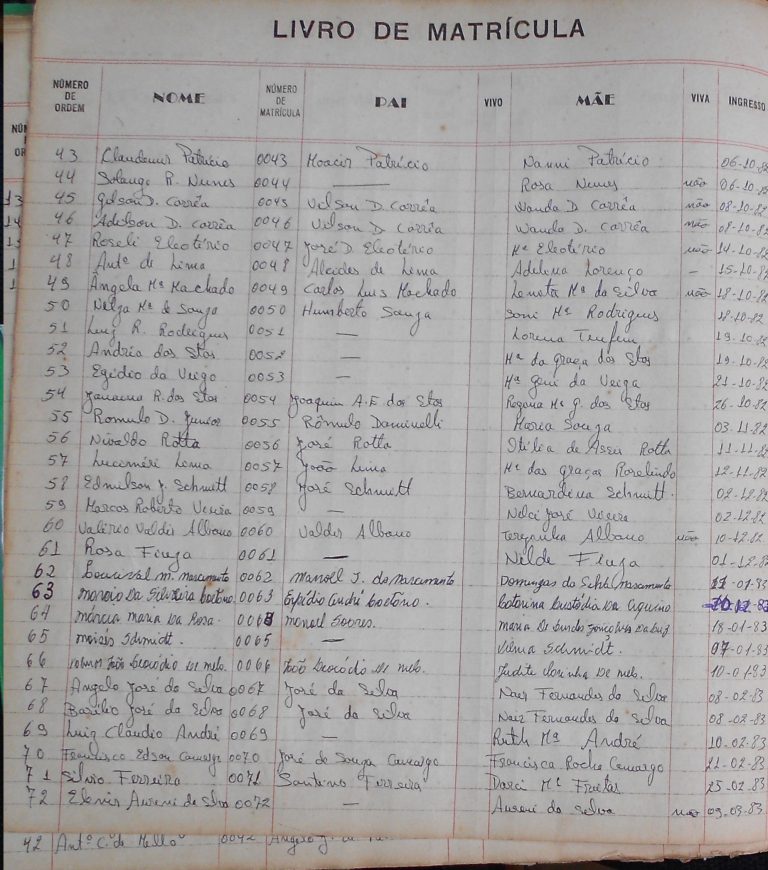 LIVRO DE MATRÍCULA
NÚMERO DE ORDEM NOME NÚMERO DE MATRÍCULA PAI VIVO MÃE VIVA INGRESSO
43 Claudemir Patrício 0043 Moacir Patrício Nanni Patrício 06-10-82
44 Solange R. Nunes 0044 — Rosa Nunes não 06-10-82
45 Gilson D. Corrêa 0045 Vilson D. Corrêa Wanda D. Corrêa não 08-10-82
46 Adilson D. Corrêa 0046 Vilson D. Corrêa Wanda D. Corrêa não 08-10-82
47 Roseli Eleotério 0047 José D. Eleotério Mª Eleotério não 14-10-82
48 Antº de Lima 0048 Alcides de Lima Adelina Lorenço – 15-10-82
49 Ângela Mª Machado 0049 Carlos Luis Machado Mª da Silva não 18-10-82
50 Nilza Mª de Souza 0050 Humberto Souza Soni Mª Rodrigues 18-10-82
51 Luiz R. Rodrigues 0051 — Lorena 19-10-82
52 Andria dos Stos 0052 — Mª da Graça dos Stos 19-10-82
53 Egidio da Veiga 0053 — Mª Geni da Veiga 21-10-82
54 Janaina R. dos Stos 0054 Joaquim A.F. dos Stos Regina Mª G. dos Stos 26-10-82
55 Romulo D. Junior 0055 Rômulo Maria Souza 03-11-82
56 Nivaldo Rotta 0056 José Rotta de Assis Rotta 11-11-82
57 Luciméri Lima 0057 João Lima Mª das Graças Roselindo 12-11-82
58 Edmilson J. Schmitt 0058 José Schmitt Bernardina Schmitt. 02-12-82
59 Marcos Roberto Vieira 0059 — Nelci José Vieira 02-12-82
60 Valério Valdir Albano 0060 Valdir Albano Terezinha Albano não 10-12-82
61 Rosa Fiuza 0061 — Nilde Fiuza 01-12-82
62 Lourival M. Nascimento 0062 Manoel J. do Nascimento Domingas da Nascimento 17-01-83
63 Marcio Da Silveira Caetano. 0063 Expídio André Caetano. Catarina Custódia Da Aquino 83
64 Márcia Maria Da Rosa. 0064 Manoel Soares. Maria De Lurdes Gonçalves Da Luz 18-01-83
65 Moisés Schmidt. 0065 — Vilma Schmidt. 07-01-83
66 João Leocádio De Melo. 0066 João Leocádio De Melo. Judite De Melo. 10-01-83
67 Angelo José da Silva 0067 José da Silva Nair Fernandes da Silva 08-02-83
68 Basílio José da Silva 0068 José da Silva Nair Fernandes da Silva 08-02-83
69 Luiz Claudio André 0069 — Ruth Mª André 10-02-83
70 Francisco Edson Camargo 0070 José de Souza Camargo Francisca Rocha Camargo 21-02-83
71 Silvio Ferreira 0071 Santino Ferreira Darci Mª Freitas 25-02-83
72 Elenir Aureni da Silva 0072 — Aureni da Silva não 03-03-83
42 Antº C. de Mello 0042